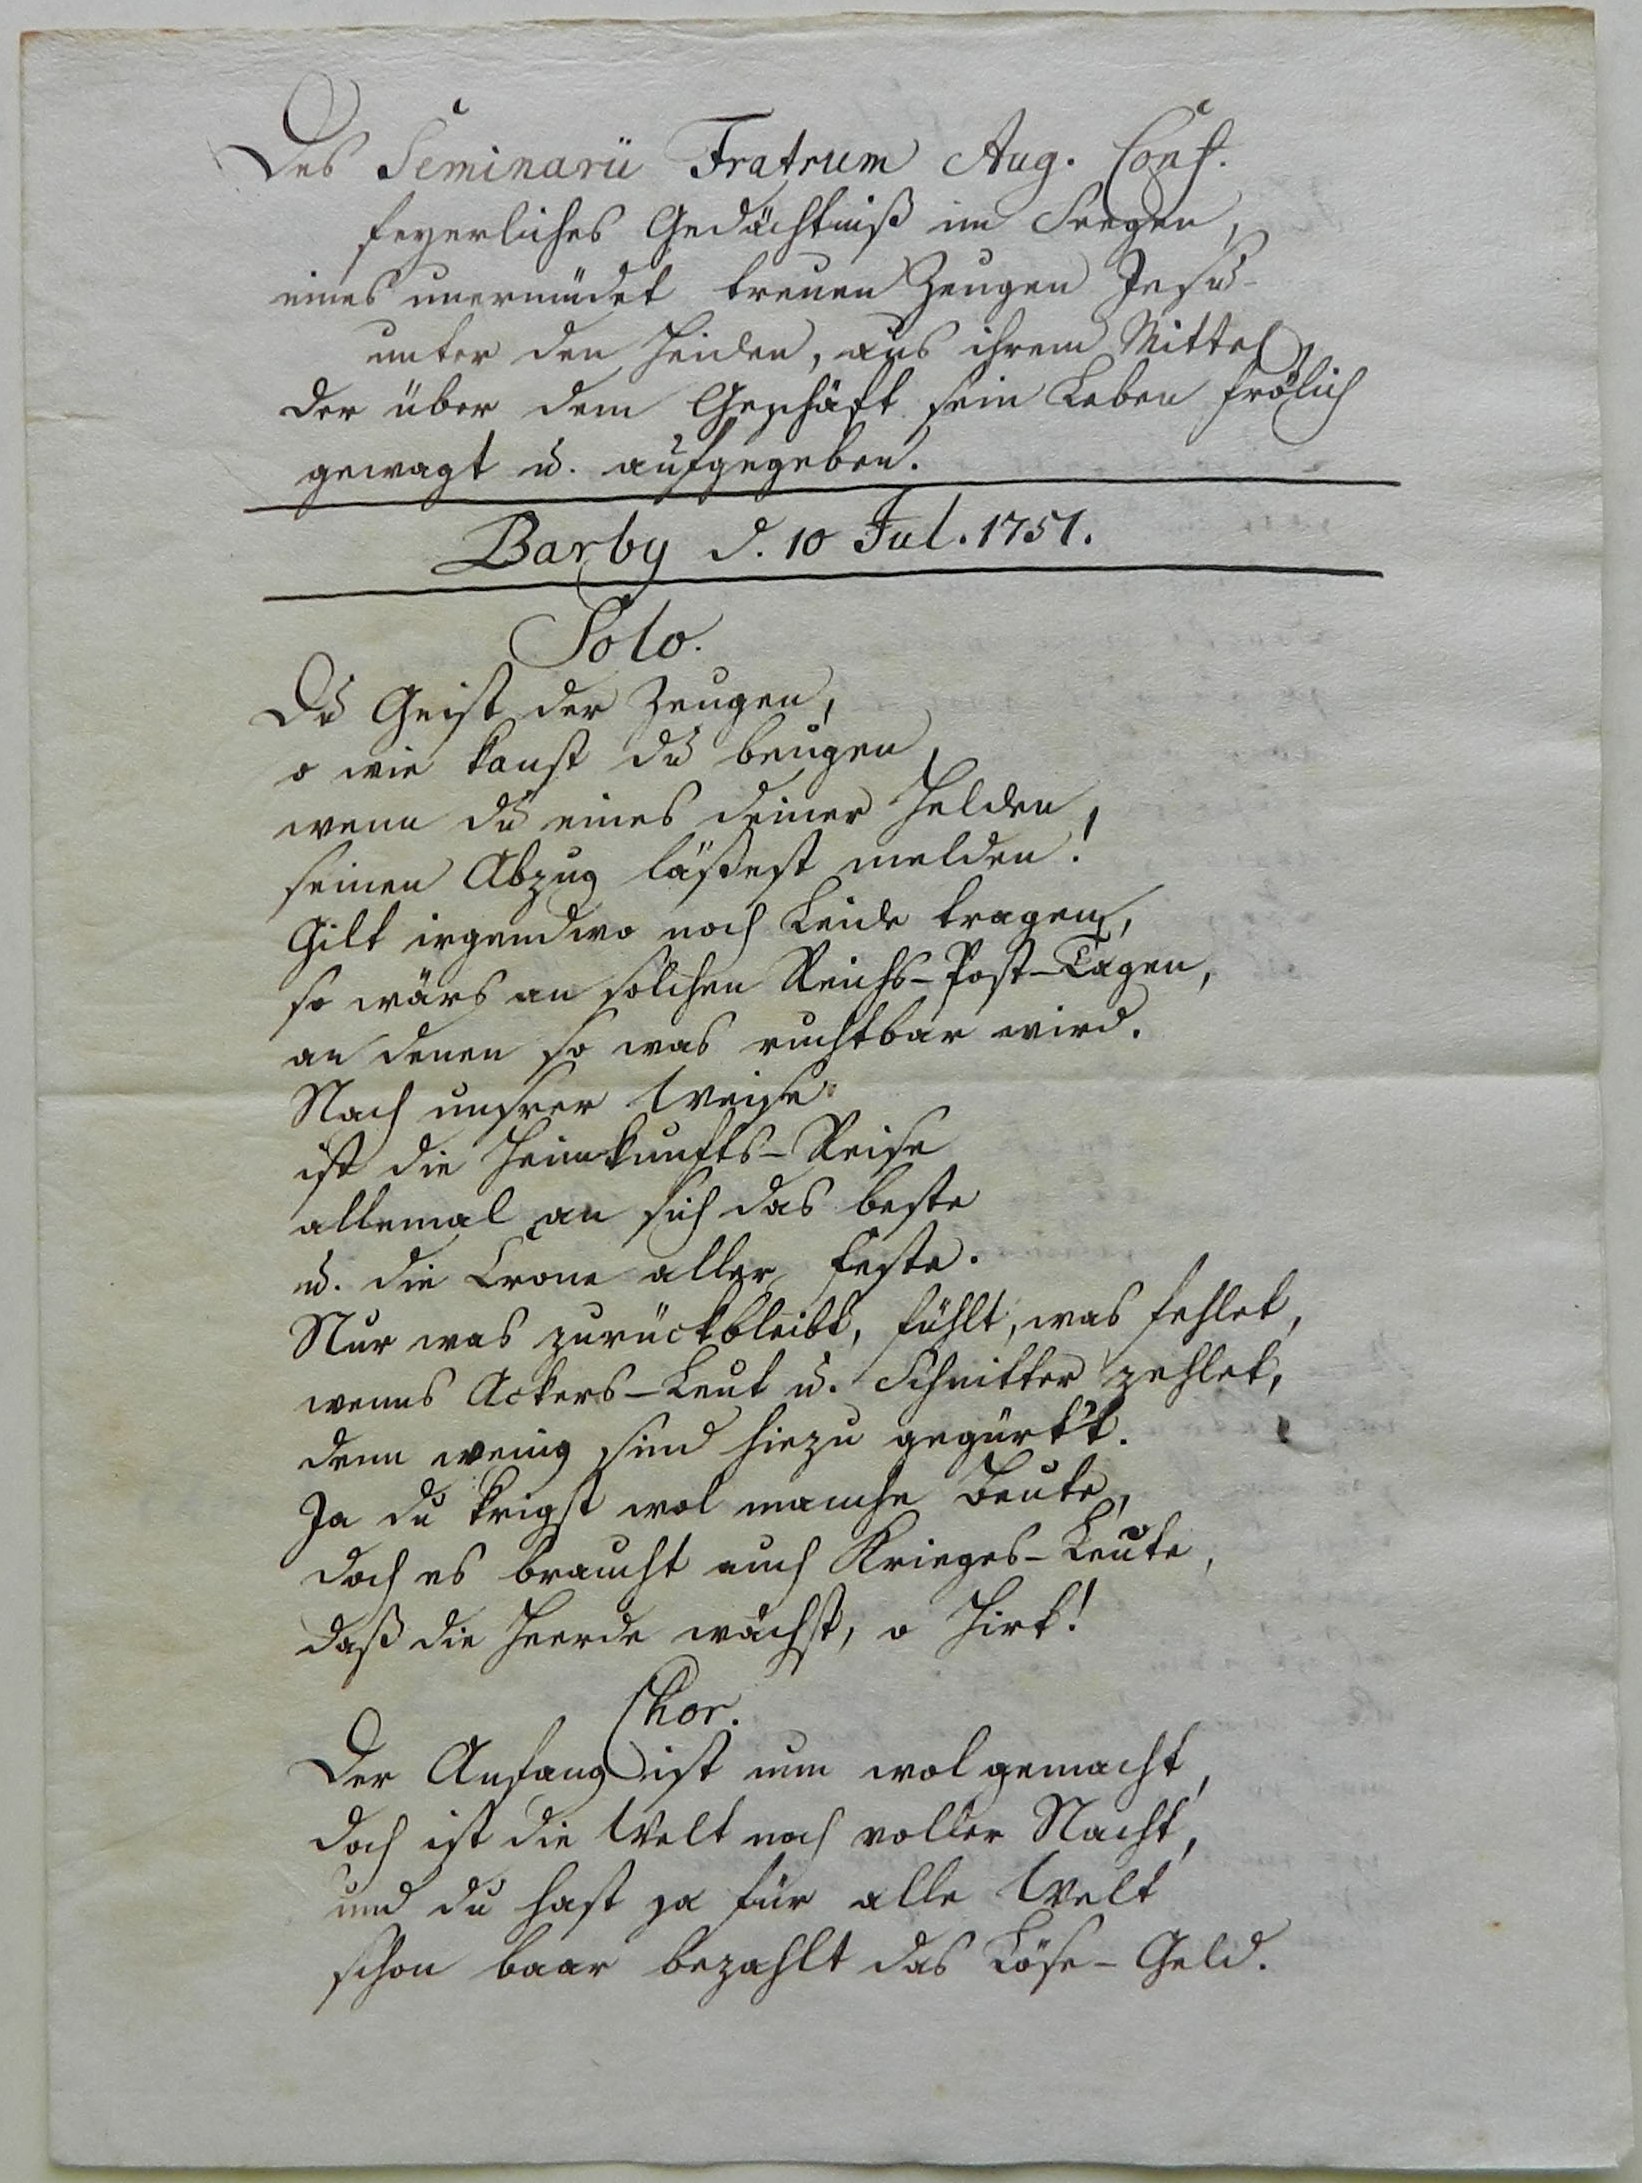 Des Seminarii Fratrum Aug. Conf.
feyerliches Gedächtniß im Seegen,
eines unermüdet treuen Zeugen Jesu
unter den Heiden, aus ihrem Mittel,
der über dem Geschäft sein Leben frölich
gewagt u. aufgegeben.
Barby d. 10 Jul. 1751.
Solo.
Du Geist der Zeugen,
o wie kanst du beugen,
wenn du eines deiner Helden,
seinen Abzug läßest melden!
Gilt irgendwo noch Leide tragen,
so wärs an solchen Reichs-Post-Tagen,
an denen so was ruchtbar wird.
Nach unsrer Weise
ist die Heimkunfts-Reise
allemal an sich das beste
u. die Crone aller Feste.
Nur was zurückbleibt, fühlt, was fehlet,
wenns Ackers-Leut u. Schnitter zehlet,
denn wenig sind hiezu gegürt't.
Ja du krigst wol manche Beute,
doch es braucht auch Krieges-Leute,
daß die Heerde wächst, o Hirt!
Chor.
Der Anfang ist nun wol gemacht,
doch ist die Welt noch voller Nacht,
und du hast ja für alle Welt
schon baar bezahlt das Löse-Geld.